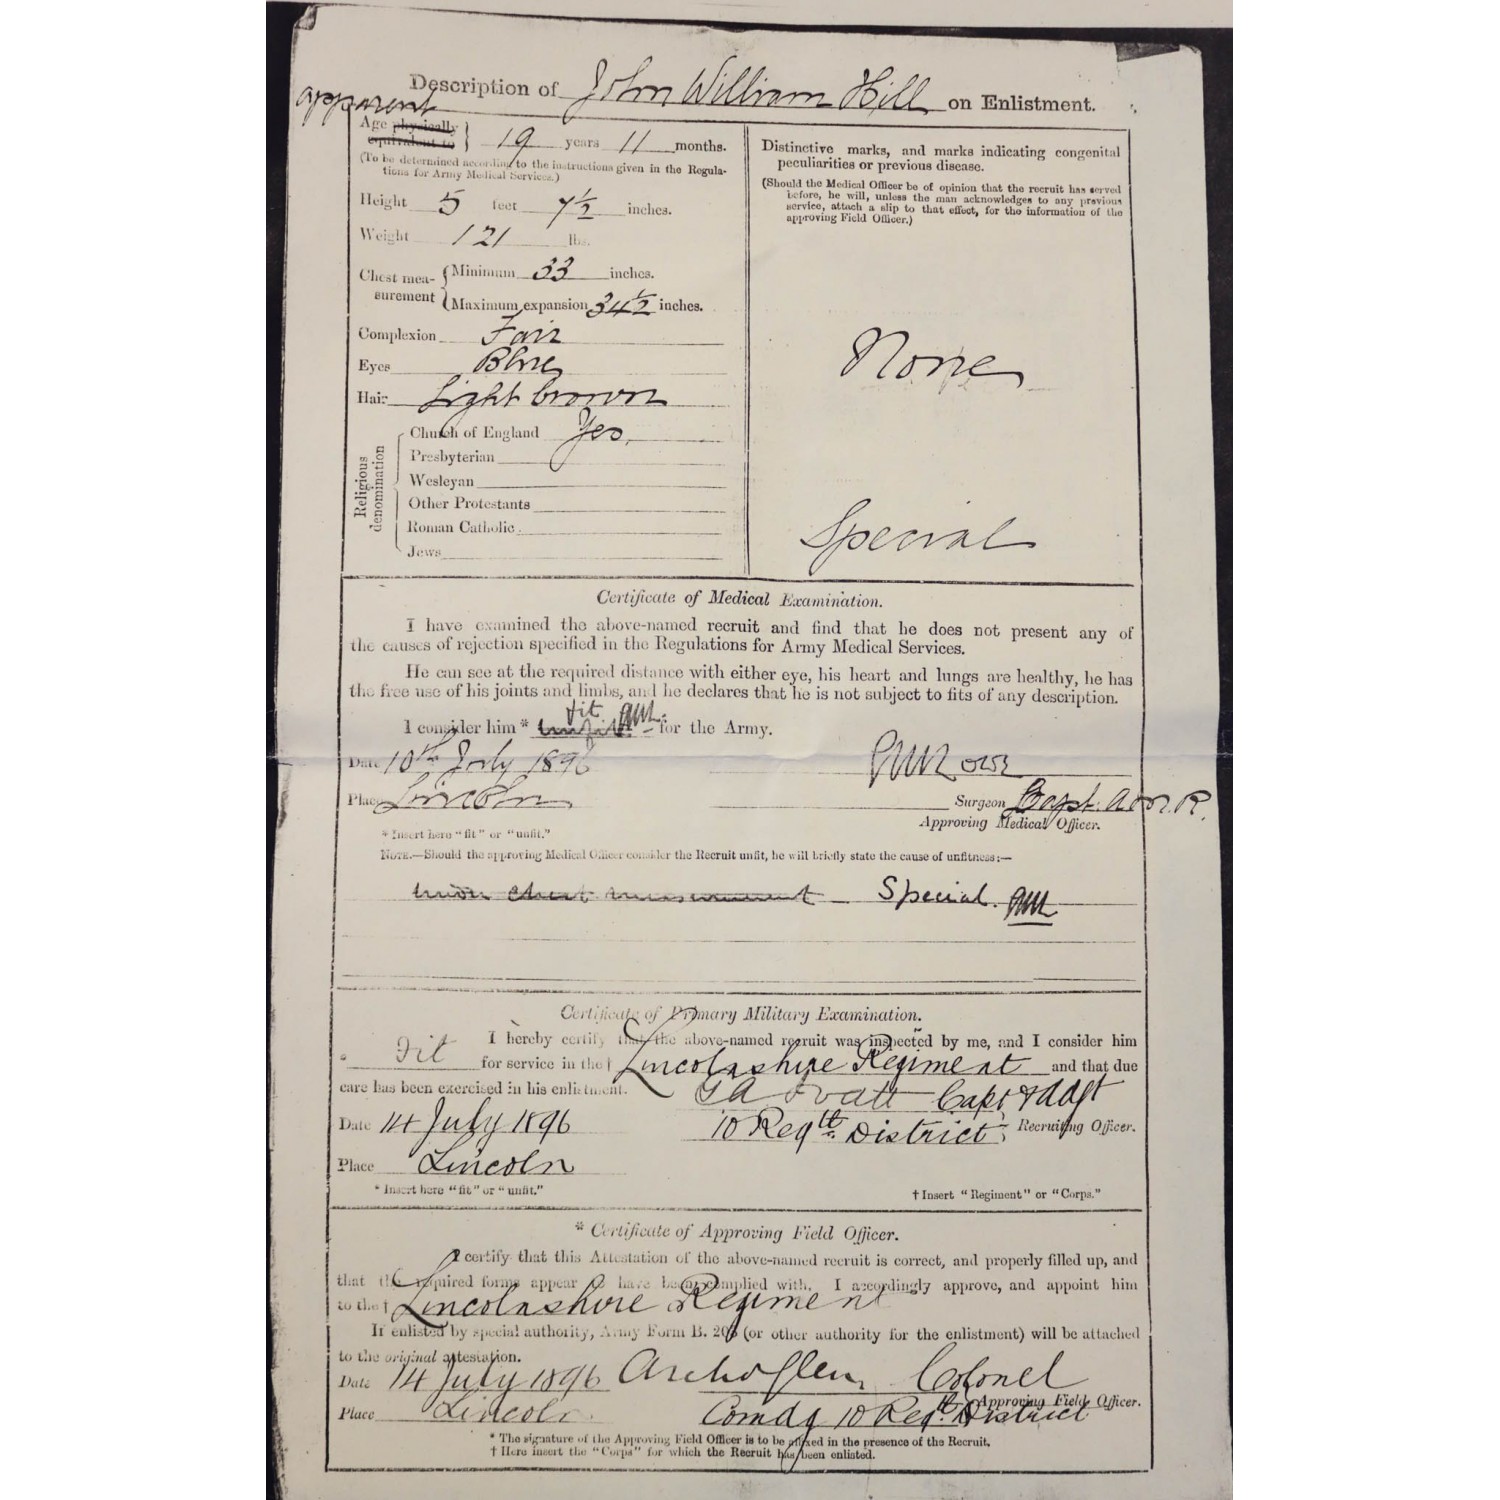 Description of John William Hill on Enlistment.
apparent
Age physically equivalent to } 19 years 11 months.
(To be determined according to the instructions given in the Regula-
tions for Army Medical Services.)
Height 5 feet 7½ inches.
Weight 121 lbs.
Chest mea-
surement { Minimum 33 inches.
Maximum expansion 34½ inches.
Complexion Fair
Eyes Blue
Hair Light brown
Religious denomination
Church of England Yes
Presbyterian
Wesleyan
Other Protestants
Roman Catholic
Jews
Distinctive marks, and marks indicating congenital
peculiarities or previous disease.
(Should the Medical Officer be of opinion that the recruit has served
before, he will, unless the man acknowledges to any previous
service, attach a slip to that effect, for the information of the
approving Field Officer.)
None
Special
Certificate of Medical Examination.
I have examined the above-named recruit and find that he does not present any of
the causes of rejection specified in the Regulations for Army Medical Services.
He can see at the required distance with either eye, his heart and lungs are healthy, he has
the free use of his joints and limbs, and he declares that he is not subject to fits of any description.
fit
I consider him * unfit for the Army.
Date 10th July 1896
Place Lincoln
Surgeon Capt.
Approving Medical Officer.
* Insert here "fit" or "unfit."
NOTE.—Should the approving Medical Officer consider the Recruit unfit, he will briefly state the cause of unfitness:—
under chest measurement – Special.
Certificate of Primary Military Examination.
I hereby certify that the above-named recruit was inspected by me, and I consider him
* Fit for service in the † Lincolnshire Regiment and that due
care has been exercised in his enlistment.
Capt & Adjt
Date 14 July 1896
10 Regtl. District Recruiting Officer.
Place Lincoln
* Insert here "fit" or "unfit."
† Insert "Regiment" or "Corps."
* Certificate of Approving Field Officer.
I certify that this Attestation of the above-named recruit is correct, and properly filled up, and
that the required forms appear to have been complied with. I accordingly approve, and appoint him
to the † Lincolnshire Regiment
If enlisted by special authority, Army Form B. 203 (or other authority for the enlistment) will be attached
to the original attestation.
Date 14 July 1896 Colonel
Approving Field Officer.
Place Lincoln Comdg 10 Regtl. District
* The signature of the Approving Field Officer is to be affixed in the presence of the Recruit.
† Here insert the "Corps" for which the Recruit has been enlisted.